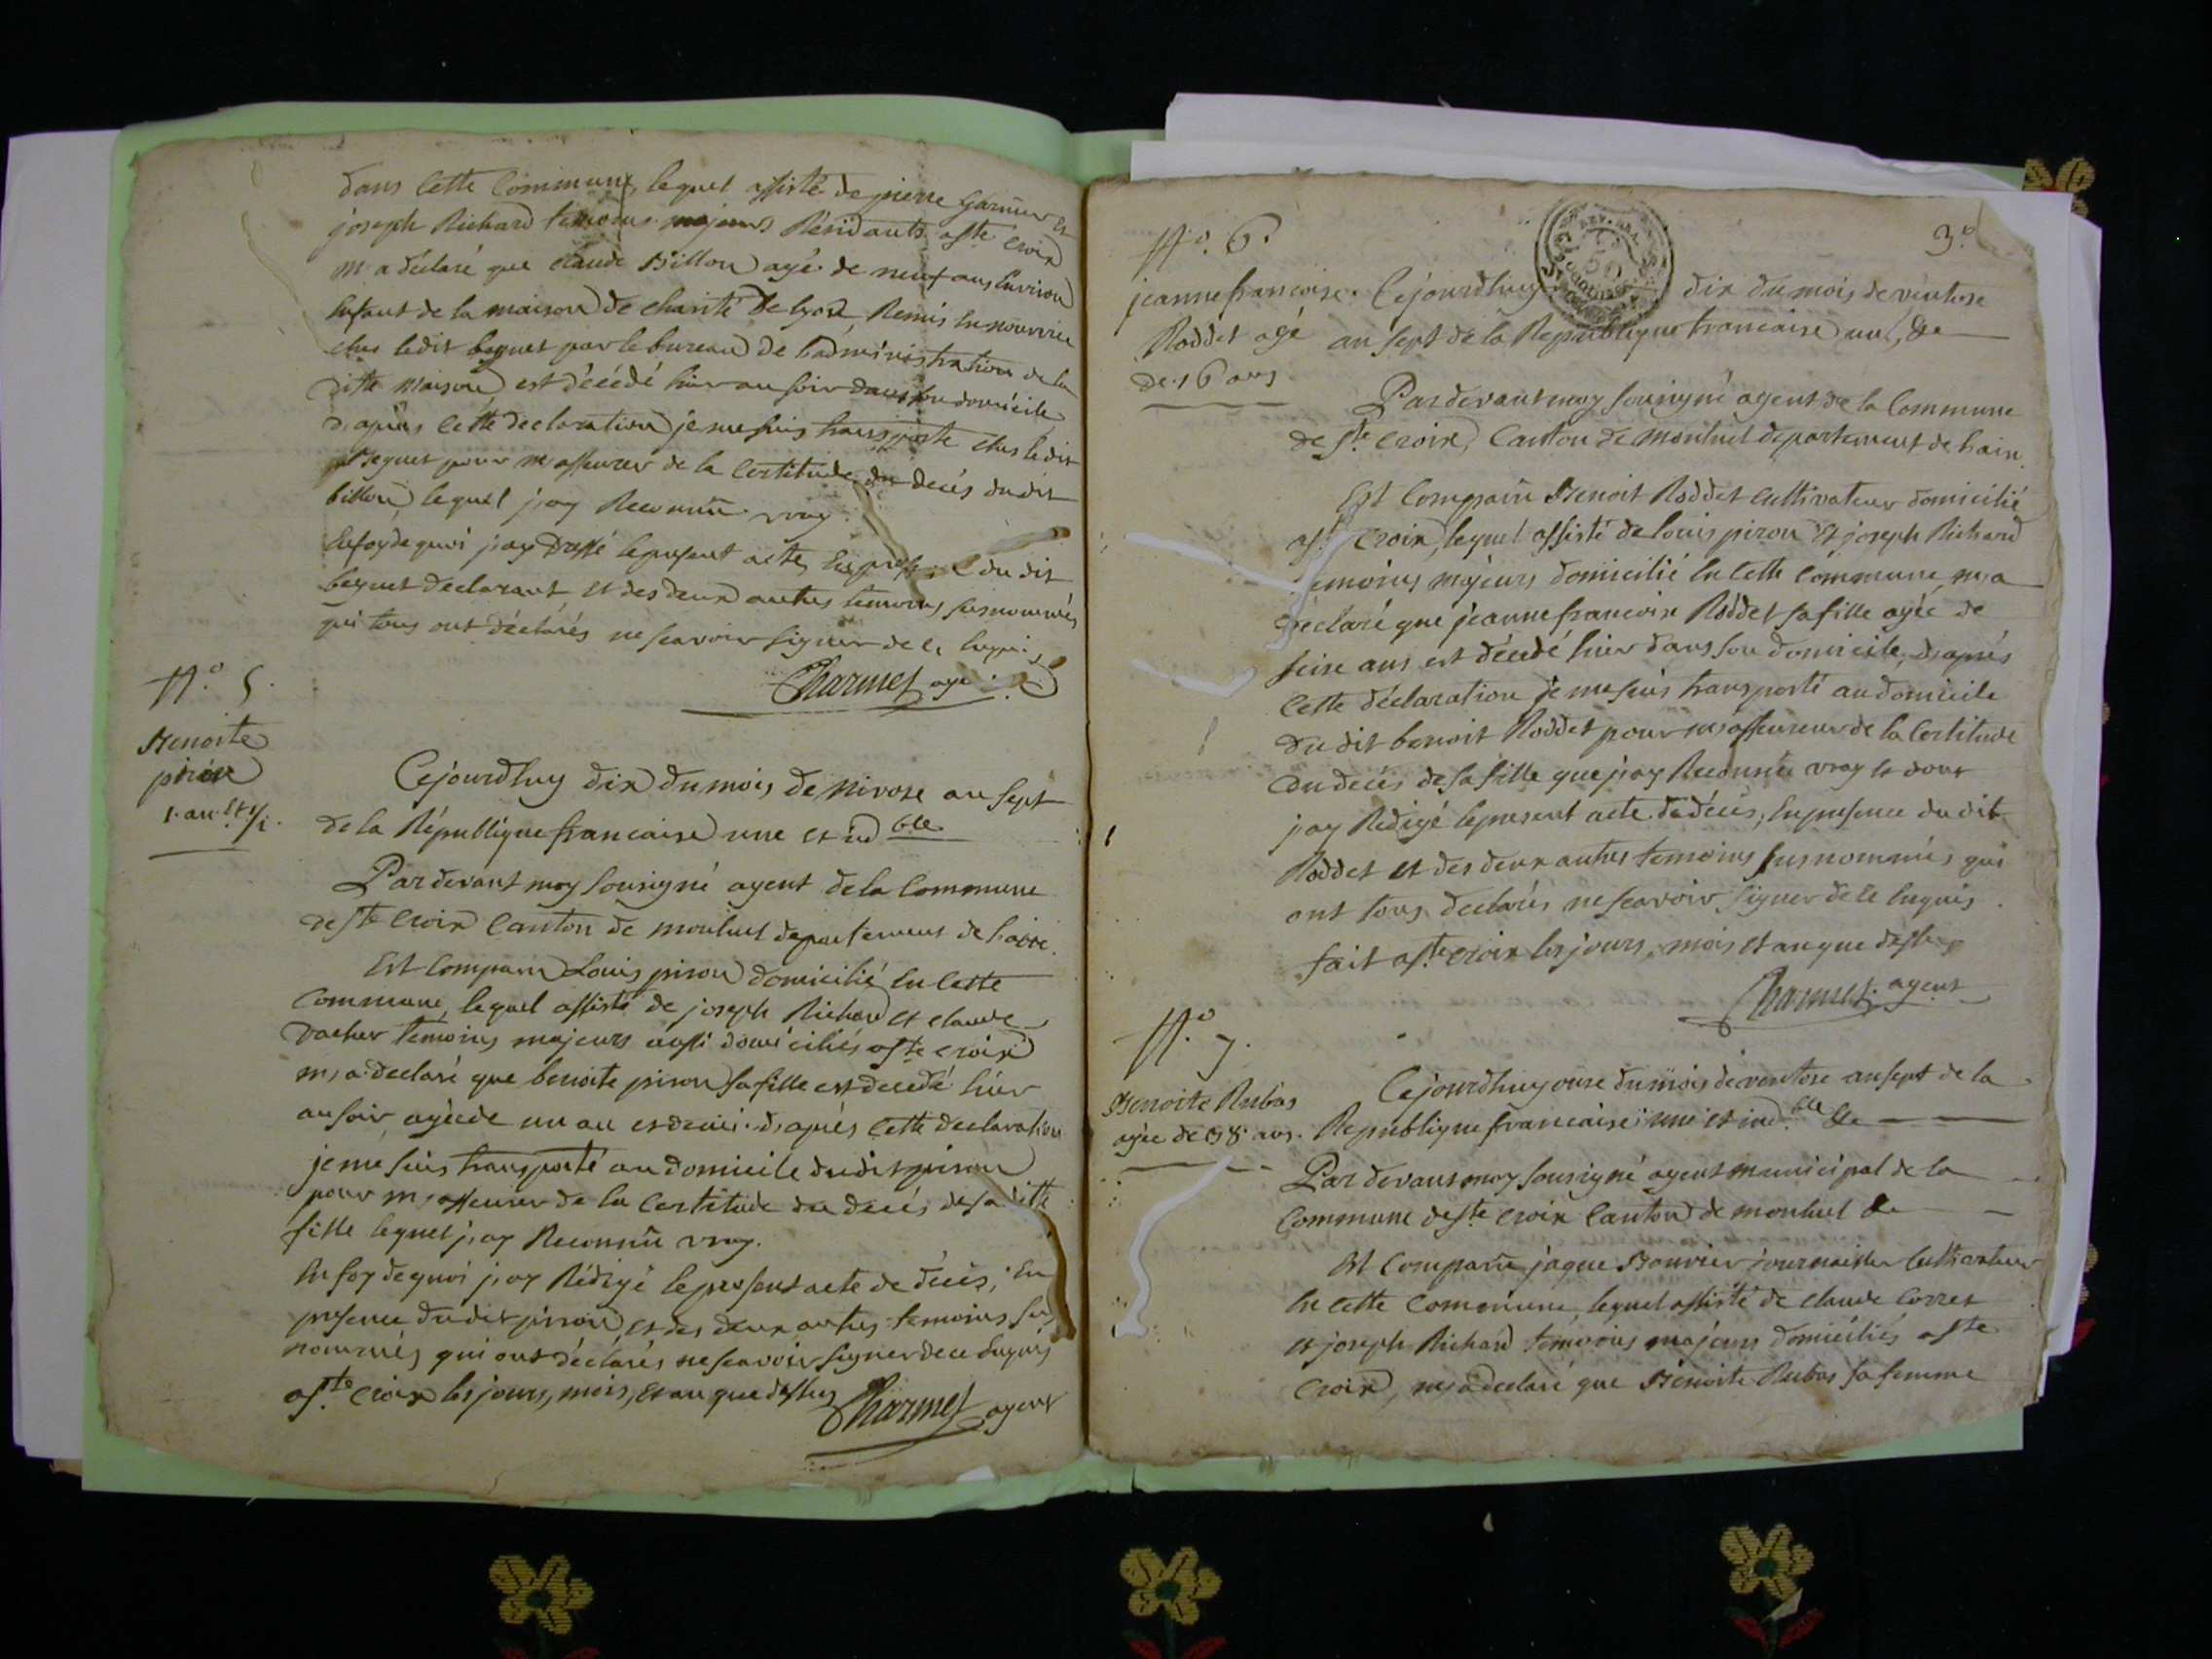 dans Cette Commune, lequel assisté de pierre Garnier et
joseph Richard temoins majeurs Résidants a ste croix
m'a déclaré que claude Billon agé de neuf ans Environ
Enfant de la maison de charité de lyon Remis En nourrice
ches ledit beguet par le bureau de l'administration de la
ditte maison, est décédé hier au soir dans son domicile
d'apiès Cette declaration je me suis transporté ches ledit
Beguet pour m'asseurer de la Certitude du decés dudit
billon, lequel j'ay Reconnü vray.
En foy de quoi j'ay Dressé le present acte, En du dit
beguet declarant et des deux autres temoins susnommés
qui tous ont déclarés ne scavoir signer de ce Enquis
Charmet age
N.º 5.
Benoite
piron
1. an. et 1/2.
Cejourdhuy dix du mois de Nivose an sept
de la République francaise une et ind ble
Pardevant moy sousigné agent de la Commune
de ste Croix Canton de montluel departement de l'ain.
Est Comparu Louis piron domicilié En Cette
Commune, lequel assisté de joseph Richard et claude
vacher temoins majeurs aussi domiciliés a ste croix
m'a declaré que benoite piron sa fille est decedé hier
au soir, agée de un an et demi. d'aprés Cette declaration
je me suis transporté au domicile dudit piron
pour m'asseurer de la Certitude du decés de sa ditte
fille lequel j'ay Reconnü vray.
En foy de quoi j'ay Rédigé le present acte de décés; En
presence dudit piron, et des deux autres temoins sus
nommés qui ont déclarés ne scavoir signer de ce Enquis
a ste Croix les jours, mois, et an que dessus Charmet agent
3.e
N.º 6.
jeanne francoise
Roddet agé
de 16 ans
Cejourdhuy dix du mois de ventose
an sept de la République francaise une, &e
Pardevant moy sousigné agent de la Commune
de ste Croix, Canton de montluel departement de l'ain.
Est Comparü Benoit Roddet cultivateur domicilié
a ste Croix, lequel assisté de louis piron et joseph Richard
temoins majeurs domicilié En Cette Commune, m'a
déclaré que jeanne francoise Roddet sa fille agée de
seise ans est décedé hier dans son domicile, d'aprés
Cette déclaration je me suis transporté au domicile
du dit benoit Roddet pour m'asseureur de la Certitude
du decés de sa fille que j'ay Reconnu vray et dont
j'ay Redigé le present acte de décés, En presence du dit
Roddet et des deux autres temoins susnommés qui
ont tous declarés ne scavoir signer de ce Enquis.
fait a ste croix les jours, mois et an que dessus
Charmet agent
N.º 7.
Benoite Rubas
agée de 58 ans.
Cejourdhuy onse du mois de ventose an sept de la
Republique francaise; une et ind. ble &e
Pardevant moy sousigné agent municipal de la
Commune de ste Croix Canton de montluel &e
Est Comparü jaque Bouvier Cultivateur
En cette Commune, lequel assisté de claude Corret
et joseph Richard temoins majeurs domiciliés a ste
Croix, m'a declaré que Benoite Rubas sa femme